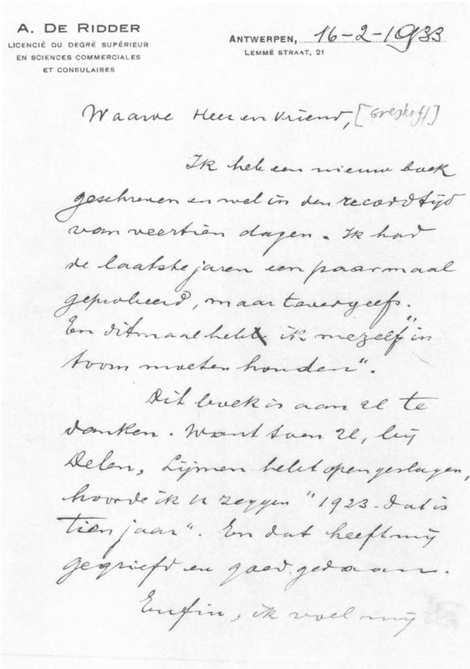 A. DE RIDDER
LICENCIÉ DU DEGRÉ SUPÉRIEUR
EN SCIENCES COMMERCIALES
ET CONSULAIRES
ANTWERPEN, 16-2-1933
LEMMÉ STRAAT, 21
Waarde Heer en Vriend, [Greshoff]
Ik heb een nieuw boek
geschreven en wel in den recordtijd
van veertien dagen. Ik had
de laatste jaren een paar maal
geprobeerd, maar tevergeefs.
En ditmaal heb ik mezelf "in
toom moeten houden".
Dit boek is aan U te
danken. Want toen U, bij
Delen, Lijmen hebt opengeslagen,
hoorde ik U zeggen "1923. Dat is
tien jaar". En dat heeft mij
gegriefd en goed gedaan.
Enfin, ik voel mij